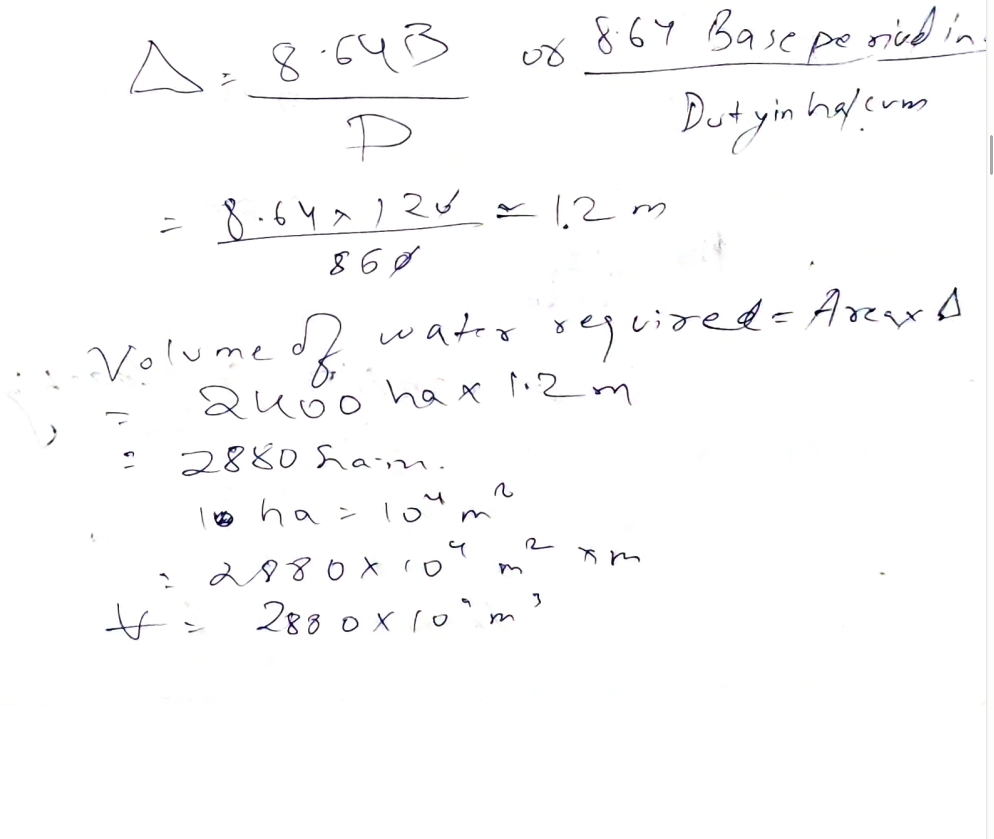 Δ = 8.64B / D or 8.64 Base period in / Duty in ha/cum
= 8.64 × 120 / 860 ≃ 1.2 m
∴ Volume of water required = Area × Δ
= 2400 ha × 1.2 m
= 2880 ha-m.
1 ha = 10⁴ m²
= 2880 × 10⁴ m² × m
V = 2880 × 10⁴ m³